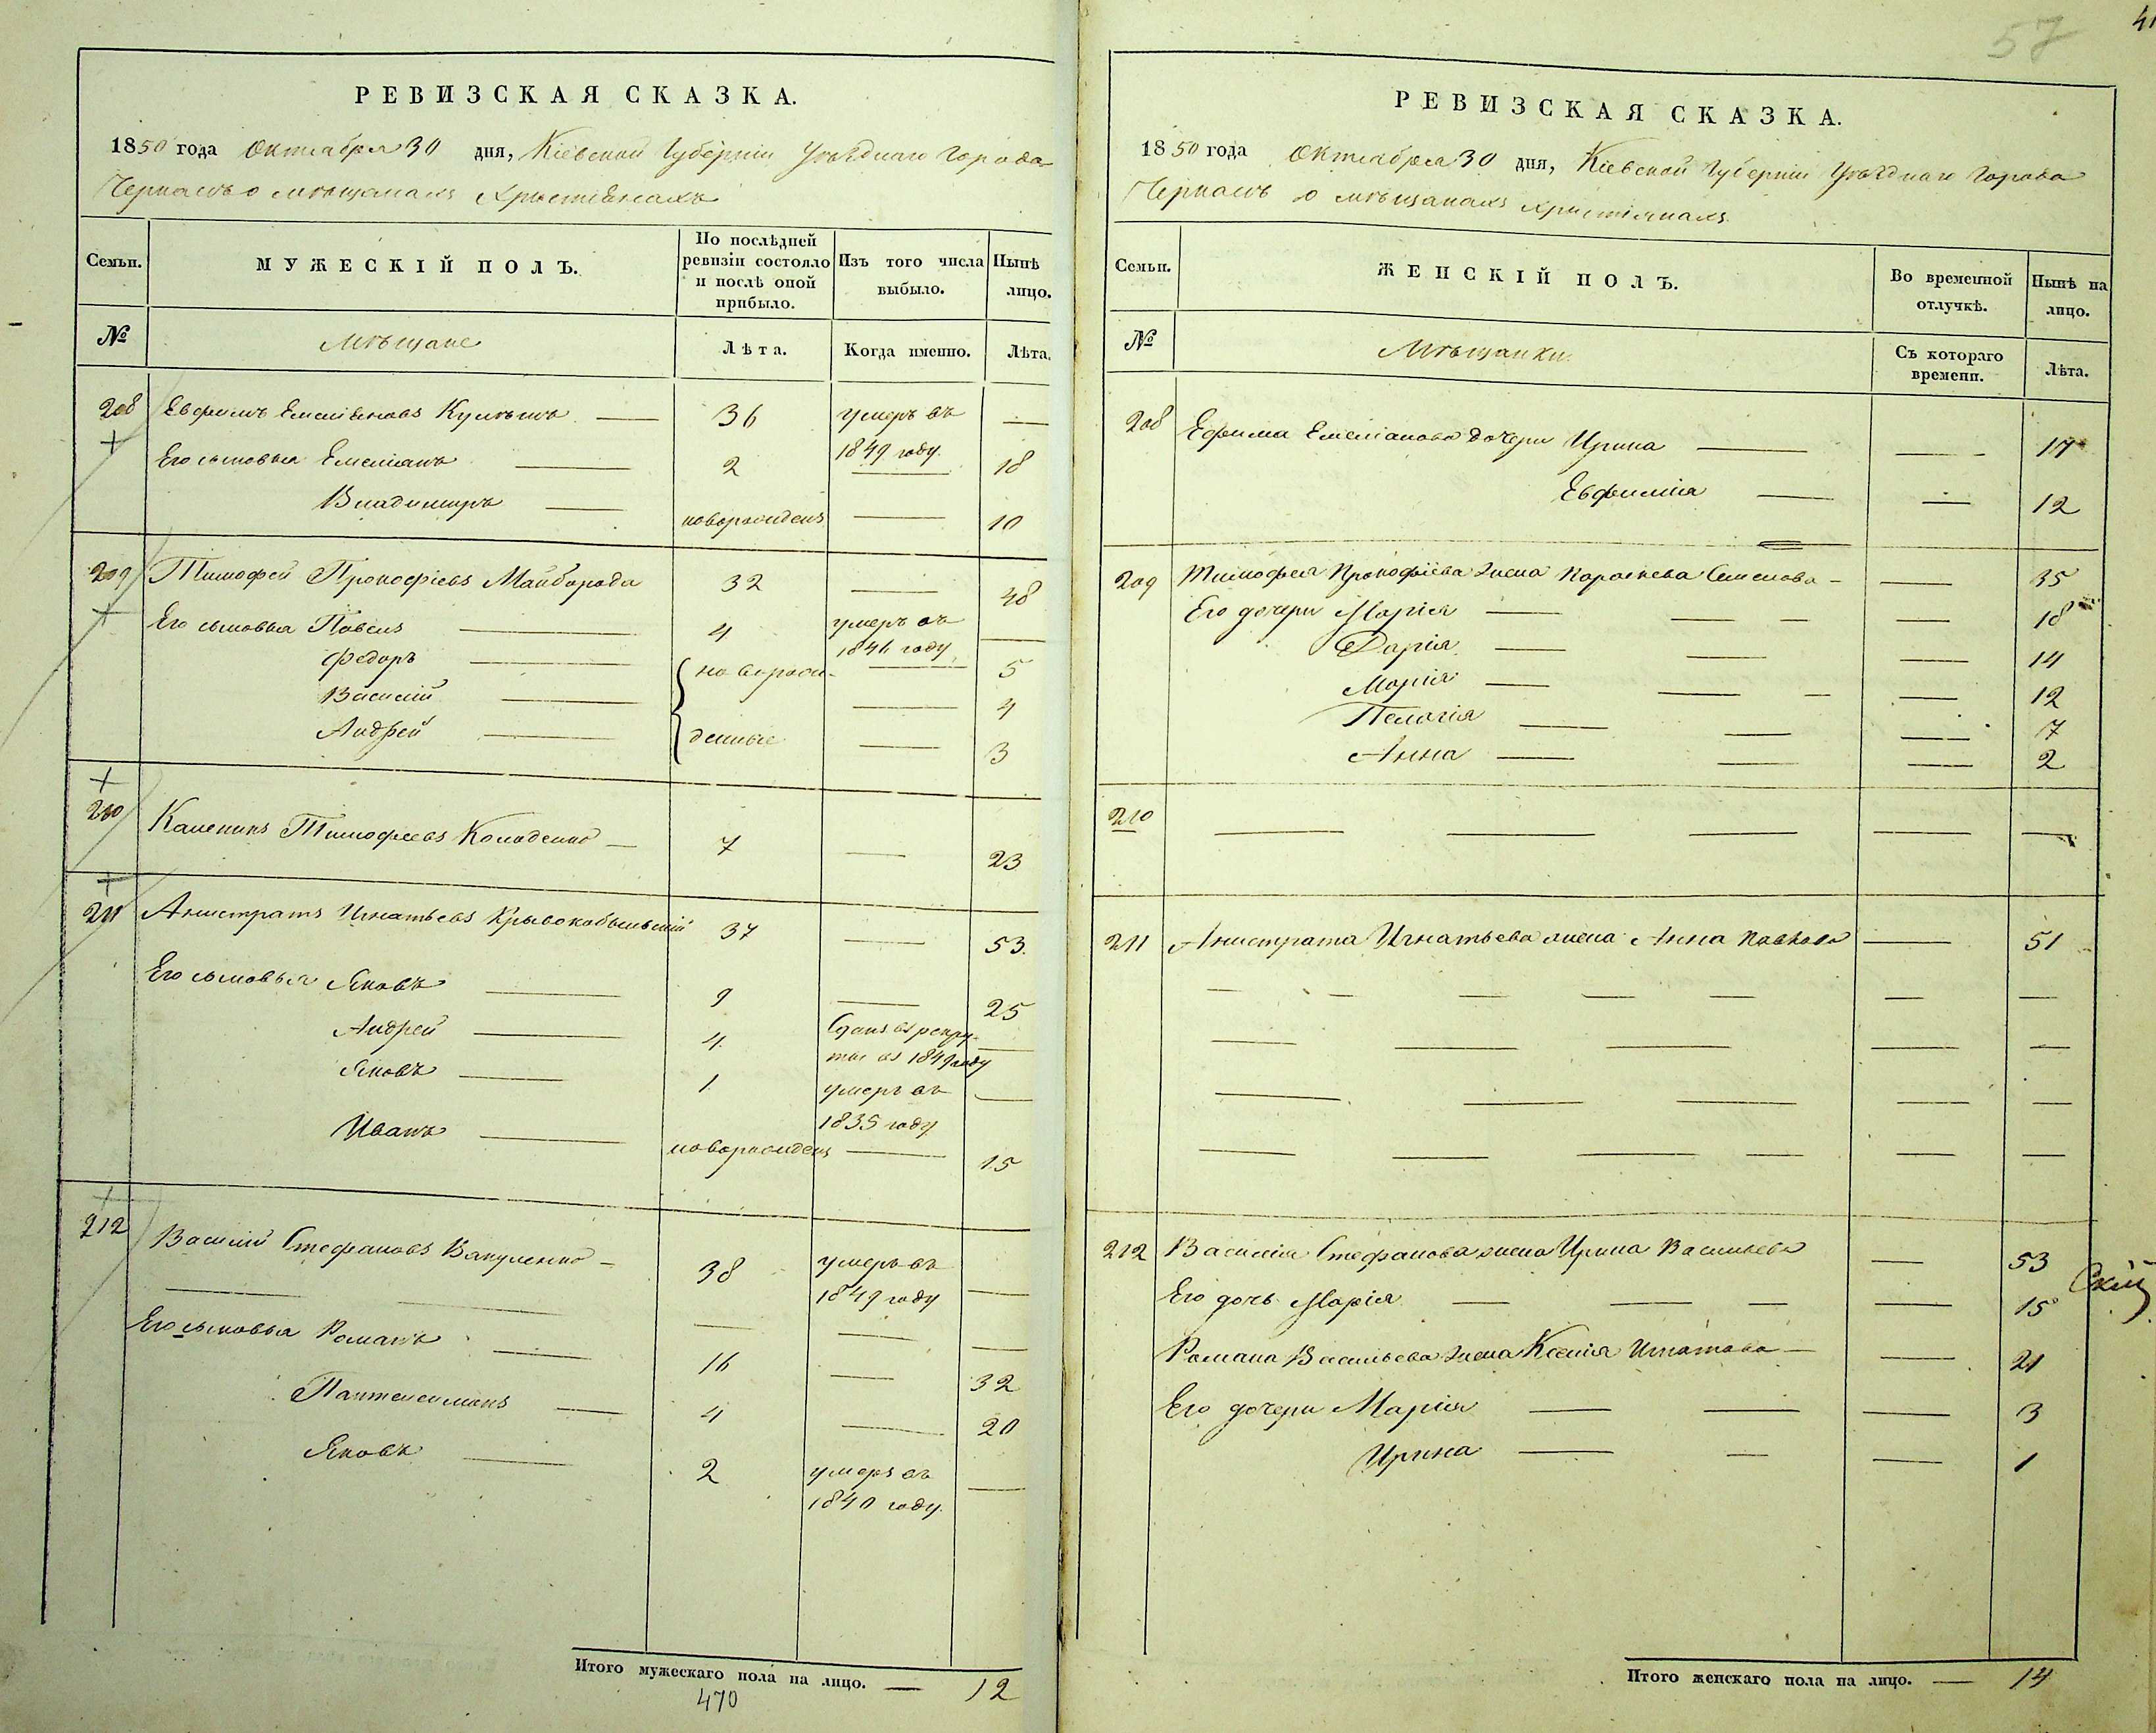 57
41
РЕВИЗСКАЯ СКАЗКА.
1850 года Октября 30 дня, Кіевской Губерніи Уѣзднаго Города
Черкасъ о мѣщанахъ Христіянахъ
Семьи.
МУЖЕСКІЙ ПОЛЪ.
По послѣдней ревизіи состояло и послѣ оной прибыло.
Изъ того числа выбыло.
Нынѣ лицо.
№
Мѣщане
Лѣта.
Когда именно.
Лѣта.
208 Евфимъ Емеліяновъ 36 умеръ въ —
Его сыновья Емеліанъ 2 1849 году. — 18
Владимиръ — новорожденъ — 10
209 Тимофей Прокофіевъ Майборода 32 — 48
Его сыновья Павелъ — 4 умеръ въ —
1846 году
Федоръ — новорож- — 5
Василій — — 4
Андрей — денные — 3
210 Каленикъ Тимофеевъ Коладенко — 7 — 23
211 Анистратъ Игнатьевъ Крывокобыльскій 37 — 53.
Его сыновья Яковъ — 9 — 25
Андрей — 4 Сданъ въ рекру- —
ты въ 1849 году
Яковъ — 1 умеръ въ —
1835 году
Иванъ — новорожденъ — 15
212 Василій Стефановъ Вакуленко — 38 умеръ въ —
1849 году
Его сыновья Романъ — 16 — 32
Пантелеимонъ — 4 — 20
Яковъ — 2 умеръ въ —
1840 году.
Итого мужескаго пола на лицо. — 12
470
РЕВИЗСКАЯ СКАЗКА.
1850 года Октября 30 дня, Кіевской Губерніи Уѣзднаго Города
Черкасъ о мѣщанахъ христіянахъ
Семьи.
ЖЕНСКІЙ ПОЛЪ.
Во временной отлучкѣ.
Нынѣ на лицо.
№
Мѣщанки.
Съ котораго времени.
Лѣта.
208 Ефима Емеліанова дочери Ирина — — 17
Евфимія — — 12
209 Тимофея Прокофіева жена Параскева Семенова — — 35
Его дочери Марія — — 18
Дарія — — 14
Марія — — 12
Пелагія — — 7
Анна — — 2
210 — — — — —
211 Анистрата Игнатьева жена Анна Павлова — 51
212 Василія Стефанова жена Ирина Васильева — 53
Его дочь Марія — — 15
Романа Васильева жена Ксенія Игнатова — — 21
Его дочери Марія — — 3
Ирина — — 1
Итого женскаго пола на лицо. — 14